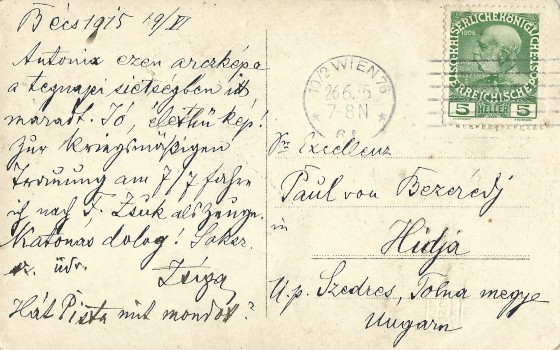 Bécs 1915 19/VI
Antonia ezen arczképe a
a tegnapi sietségben itt
maradt. Jó, élethű kép!
Zur kriegsmäßigen
Trauung am 7/7 fahre
ich nach F. Zsuk als Zeuge.
Katonás dolog! Soker
üdv.
Zsiga
Hát Pista mit mondot?
KAISERLICHEKÖNIGLICHE
ÖSTERREICHISCHE
5 HELLER 5
10/2 WIEN 76
26.6.15
7-8N
Sr Excellenz
Paul von Bezerédj
in
Hidja
U.p. Szedres, Tolna megye
Ungarn